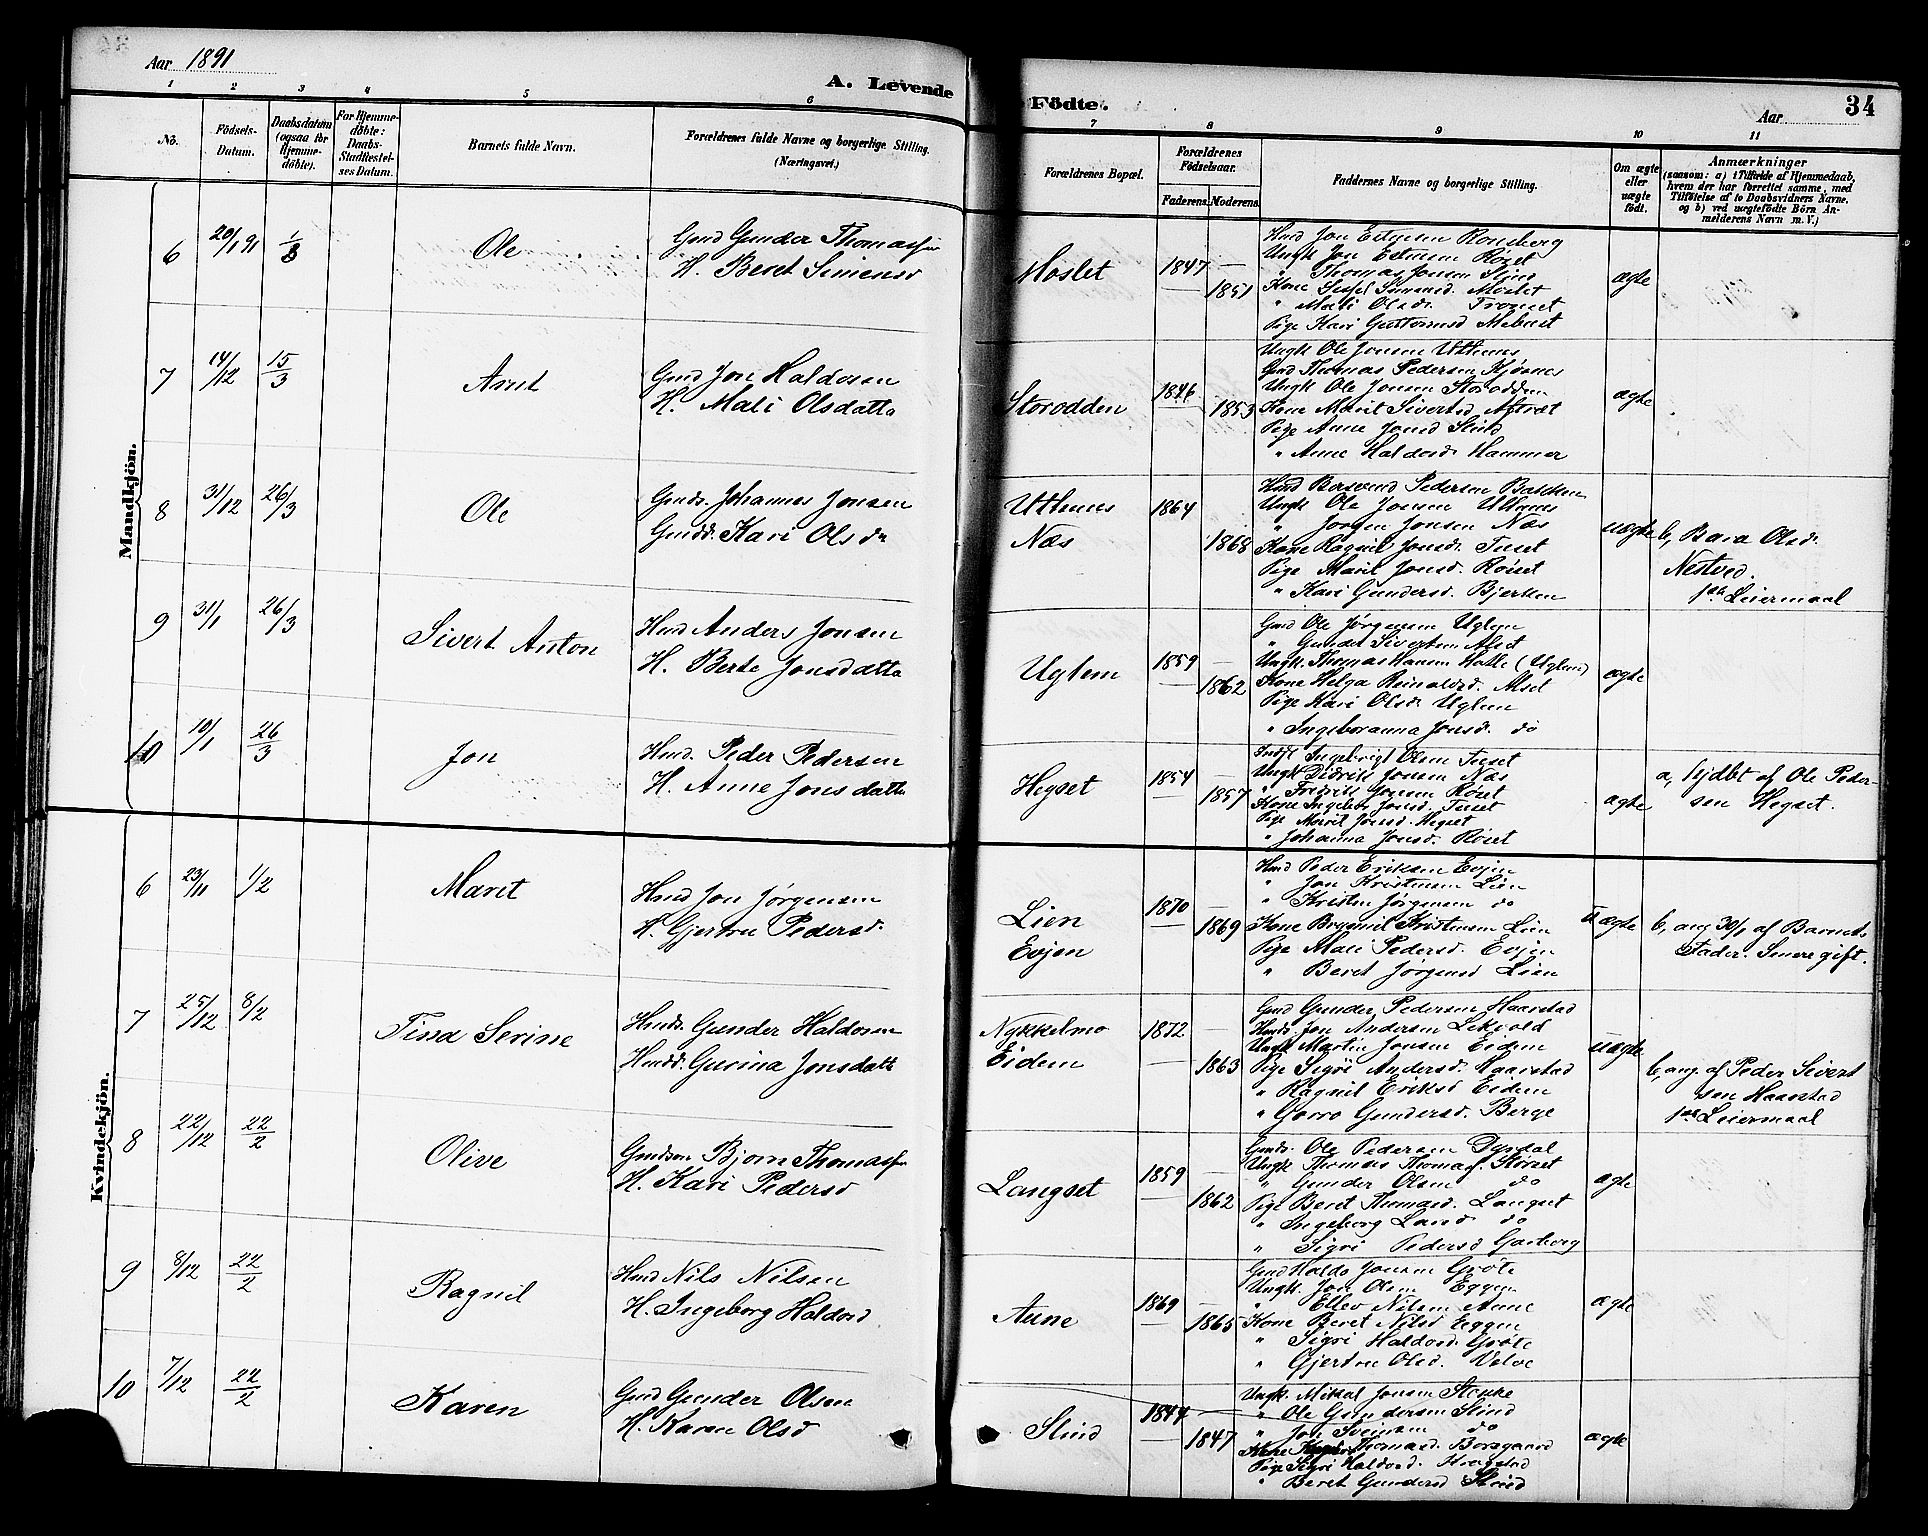 Aar 1891
A. Levende Födte.
Aar 34
1 2 3 4 5 6 7 8 9 10 11
No.
Födsels-Datum.
Daabsdatum (ogsaa for Hjemme-döbte).
For Hjemme-döbte: Daabs-Stadfæstel-ses Datum.
Barnets fulde Navn.
Forældrenes fulde Navne og borgerlige Stilling. (Næringsvei.)
Forældrenes Bopæl.
Forældrenes Födselsaar.
Faderens. Moderens.
Faddernes Navne og borgerlige Stilling.
Om ægte eller uægte født.
Anmærkninger
(saasom: a) i Tilfælde af Hjemmedaab, hvem der har forrettet samme, med Tilföielse af to Daabsvidners Navne, og b) ved uægtefödte Börn An-melderens Navn m. V.)
Mandkjön.
6 20/1 91 1/3 Ole
Gmd Gunder Thomassen
H. Beret Simensd
Moslet 1847 1851
Hmd Jon Estensen Rønsberg
Ungk Jon Estensen Røset
" Thomas Jonsen Slind
Kone Sissel Simensd. Moslet
" Mali Olsdr.
Pige Kari
ægte
7 14/12 15/3 Arnt
Gmd Jon Haldosen
H. Mali Olsdatte
Storodden 1846 1853
Ungk Ole Jonsen Uthenes
Gmd Thomas Pedersen Kjøsnes
Ungk Ole Jonsen Storodden
Kone Marit Sivertsd Aftræt
Pige Anne Jonsd Slind
" Anne Haldosd. Hammer
ægte
8 31/12 26/3 Ole
Gmds. Johannes Jonsen
Gmdd. Kari Olsdr
Uthenes
Næs
1864 1868
Hmd Borsvend Pedersen Bakken
Ungk Ole Jonsen Uthenes
" Jørgen Jonsen Næs
Kone Ragnil Jonsd. Tuset
Pige Marit Jonsd. Røset
" Kari Gundersd. Bjerken
uægte b, Bara Olsd.
Nestved.
1ste Leiermaal
9 31/1 26/3 Sivert Anton
Hmd Anders Jonsen
H. Berte Jonsdatte
Uglem 1859 1862
Gmd Ole Jørgensen Uglem
" Gundet Sivertsen Alset
Ungk. Thomas Hansen Halle (Uglem)
Kone Helga Reinoldsd. Alset
Pige Kari Olsdr Uglem
" Ingeboranna Jonsd. do
ægte
10 10/1 26/3 Jon
Hmd. Peder Pedersen
H. Anne Jonsdatte
Hegset 1854 1857
Indst Ingebrigt Olsen Tuset
Ungk Didrik Jonsen Næs
" Fredrik Jonsen Røset
Kone Ingebor Jonsd. Tuset
Pige Marit Jonsd. Hegset
" Johanna Jonsd. Røset
ægte a, hjdbt af Ole Peder-
sen Hegset.
Kvindekjön.
6 23/11 1/2 Maret
Hmd Jon Jørgensen
H. Gjertru Pedersd.
Lien
Evjen
1870 1869
Hmd Peder Eriksen Evjen
" Jon Kristensen Lien
" Kristen Jørgensen do
Kone Bragnil Kristensen Lien
Pige Mali Pedersd. Evjen
" Beret Jørgensd Lien
uægte b, ang 30/1 af Barnets
Fader. Senere gift.
7 25/12 8/2 Tina Serine
Hmds. Gunder Haldosen
Hmdd. Gurina Jonsdatte
Nykkelmo
Eidem
1872 1863
Gmd Gunder Pedersen Haarstad
Hmds. Jon Andersen Lekvold
Ungk Martin Jonsen Eidem
Pige Sigri Andersd. Haarstad
" Ragnil Eriksd Eidem
" Gorro Gundersd. Berge
uægte b, ang. af Peder Sivert
sen Haarstad
1ste Leiermaal
8 22/12 22/2 Olive
Gmdson Bjørn Thomassen
H. Kari Pedersd
Langset 1859 1862
Gmds. Ole Pedersen Dyrdal
Ungk Thomas Thomass. Størset
" Gunder Olsen do
Pige Beret Thomasd. Langset
" Ingeborg Larsd do
" Sigri Pedersd Garberg
ægte
9 8/12 22/2 Ragnil
Hmd Nils Nilsen
H. Ingeborg Haldosd
Aune 1869 1865
Gmd Haldo Jonsen Grøte
Ungk. Jon Olsen Eggen
" Ellev Nilsen Aune
Kone Beret Nilsd Eggen
" Sigri Haldosd Grøte
" Gjertru Olsd. Velve
ægte
10 7/12 22/2 Karen
Gmd Gunder Olsen
H. Karen Olsd
Slind 1844 1847
Ungk. Mikal Jonsen Stokke
" Ole Gundersen Slind
" Jon Sveinsen do
Kone Thomasd. Borsgaard
Pige Sigri Haldosd.
" Beret Gundersd Slind
ægte